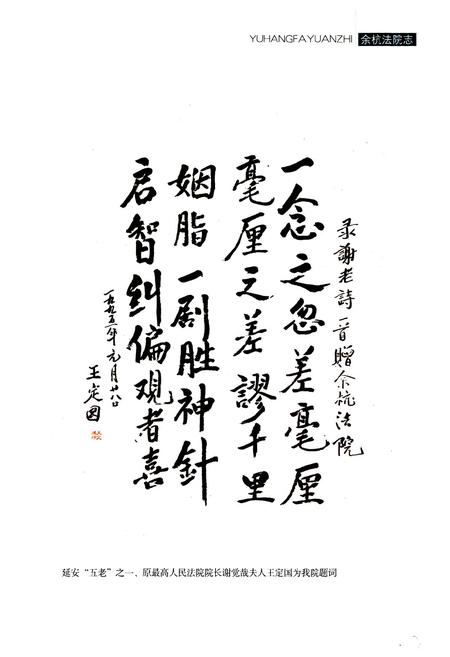 YUHANGFAYUANZHI 余杭法院志
录謝老詩一首贈余杭法院
一念之忽差毫厘
毫厘之差謬千里
姻脂一劇胜神針
启智纠偏观者喜
一九九五年元月廿八日
王定国
延安“五老”之一、原最高人民法院院长谢觉哉夫人王定国为我院题词